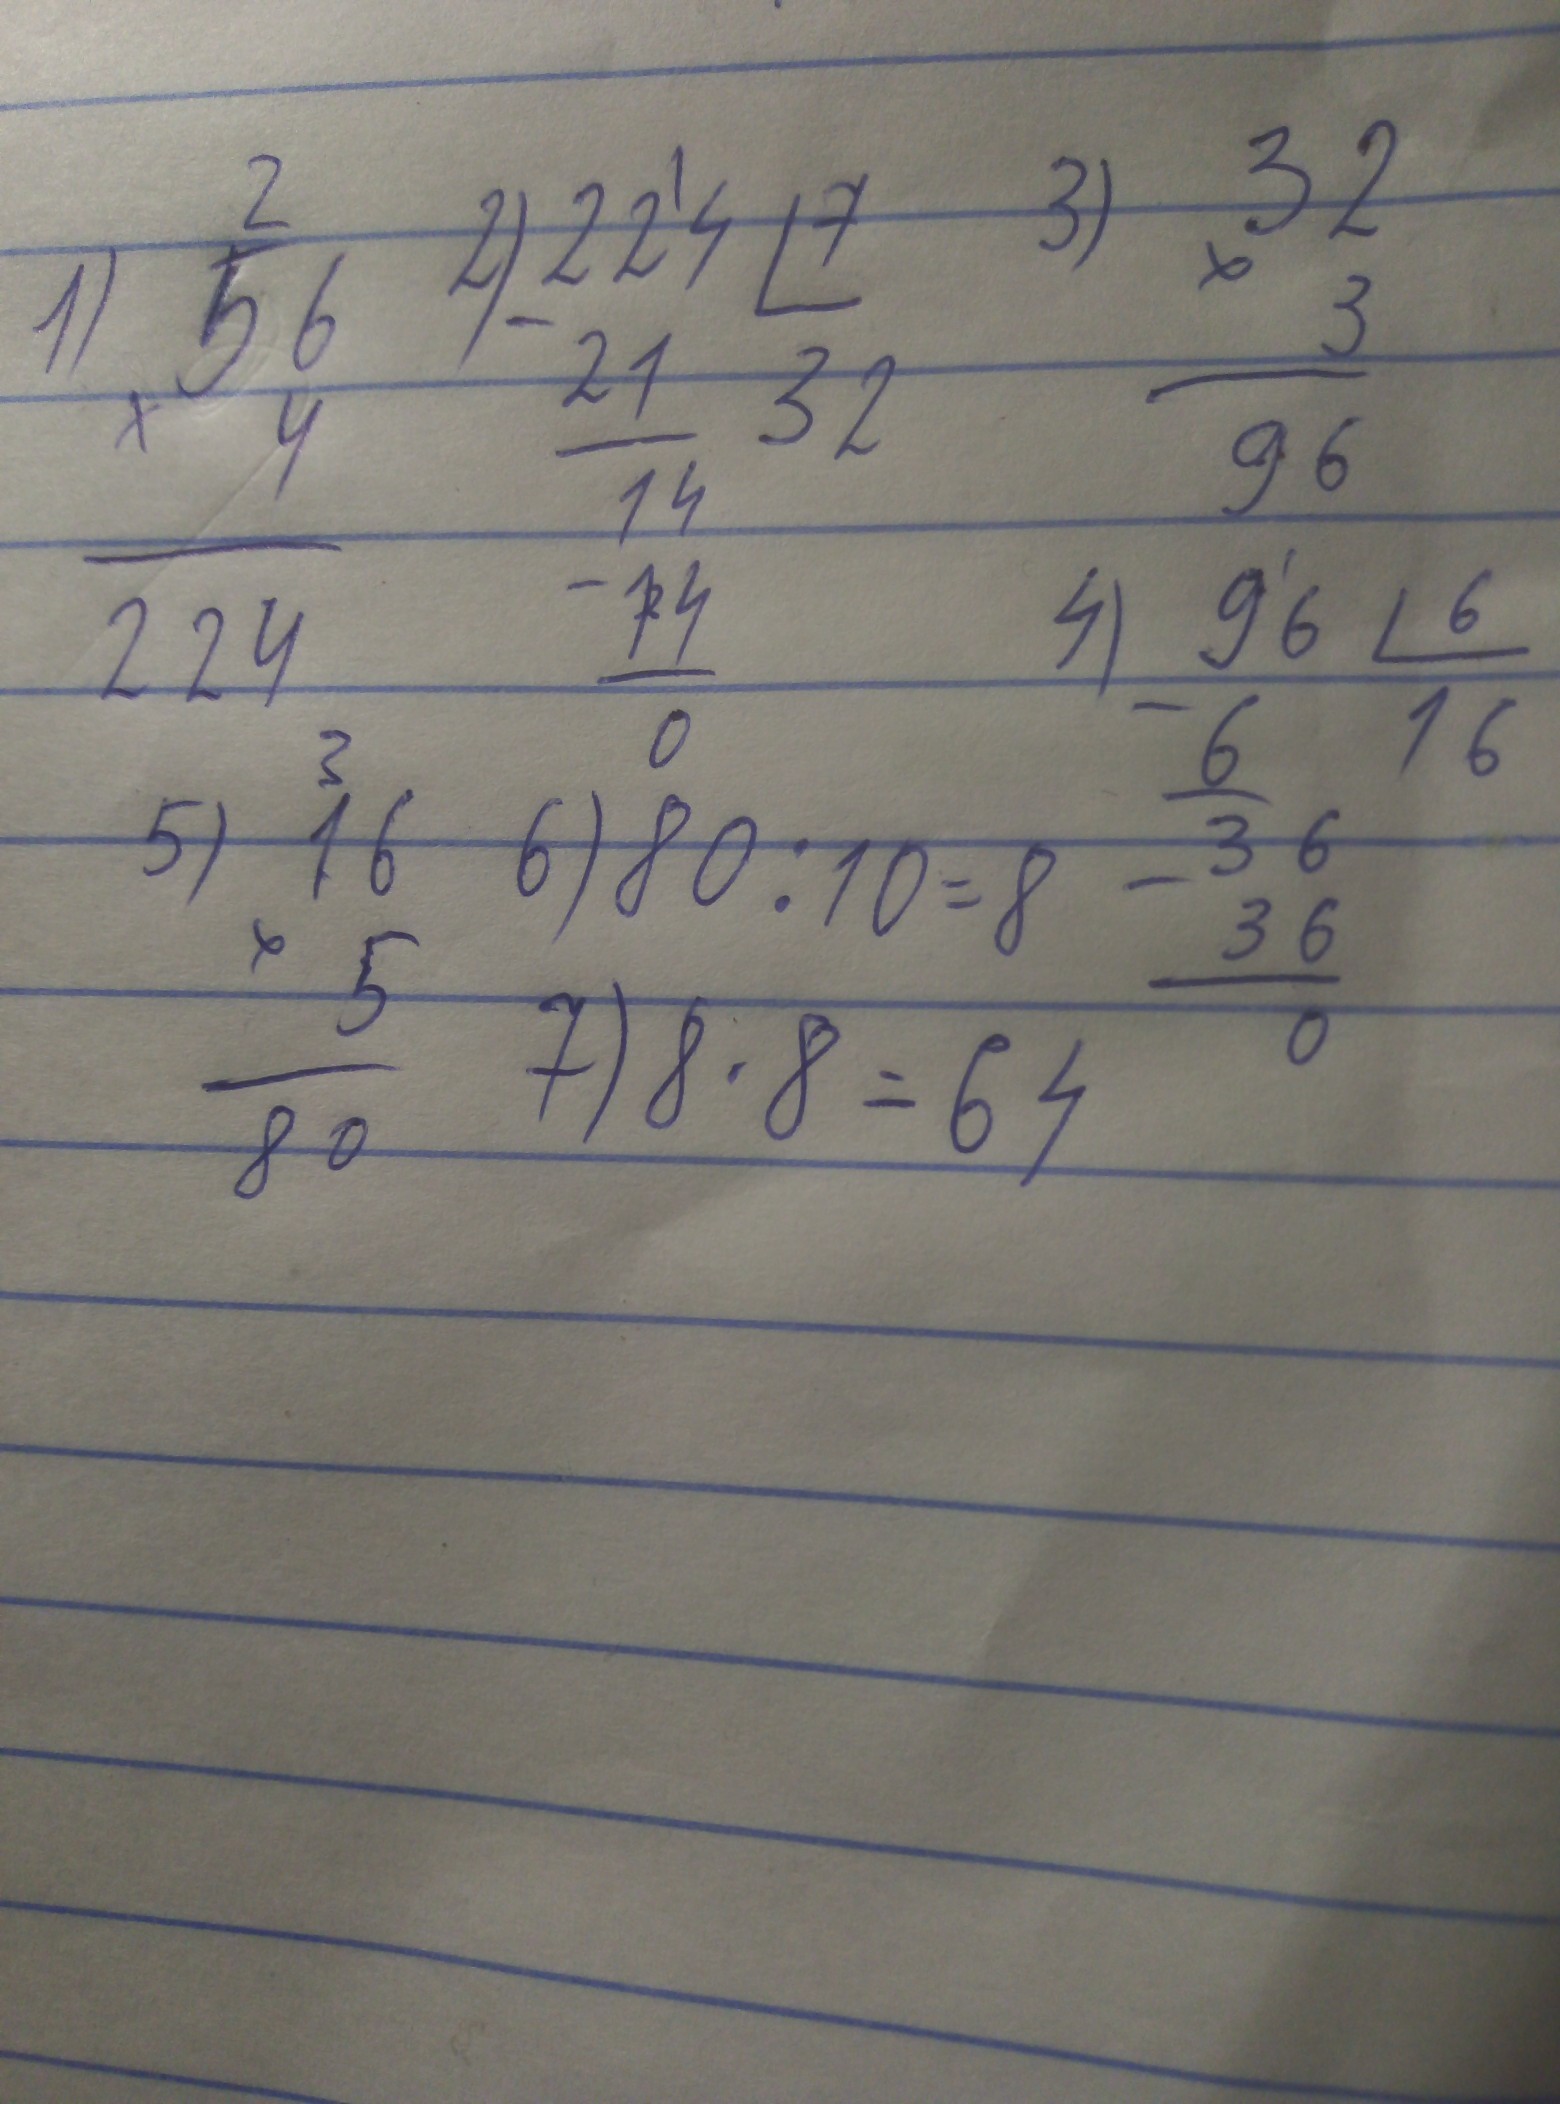 1) 56
2
× 4
224
2) 224 | 7
1
- 21 32
14
- 14
0
3) 32
× 3
96
4) 96 | 6
- 6 16
36
- 36
0
5) 16
3
× 5
80
6) 80 : 10 = 8
7) 8 · 8 = 64